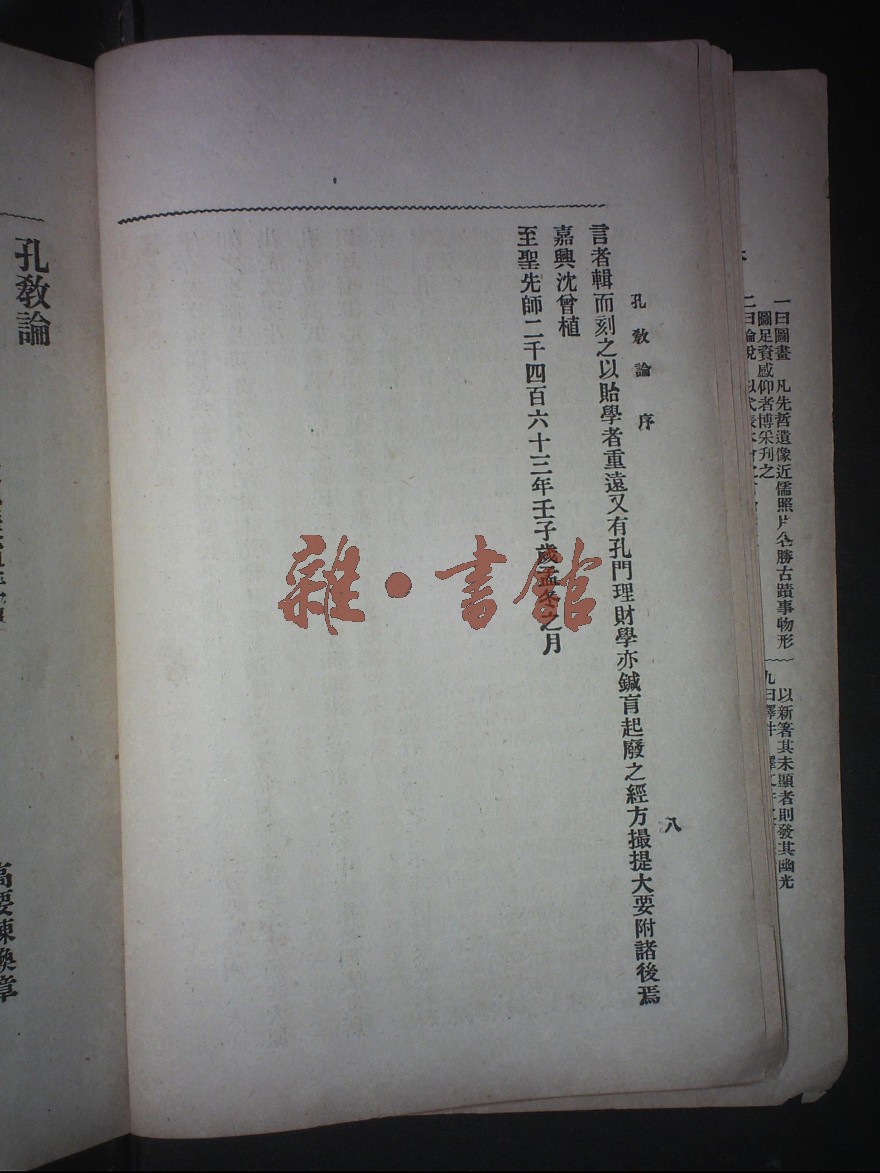 一曰圖畫 凡先哲遺像近儒照片名勝古蹟事物形
圖足資感仰者博采刋之
二曰論說
以新著其未顯者則發其幽光
九曰譯件
孔敎論 序
八
言者輯而刻之以貽學者重遠又有孔門理財學亦鍼肓起廢之經方撮提大要附諸後焉
嘉興沈曾植
至聖先師二千四百六十三年壬子歲孟冬之月
雜·書館
孔敎論
高要陳煥章